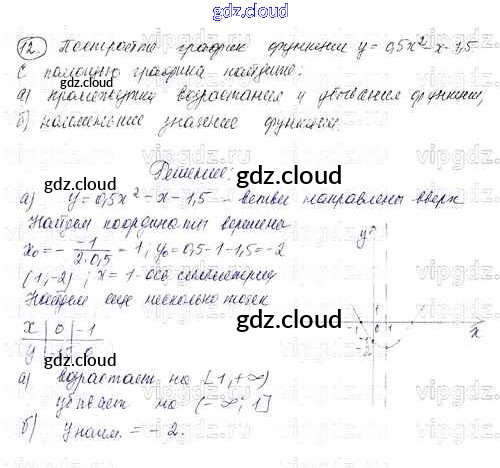 gdz.cloud
12. Постройте график функции y = 0,5x² - x - 1,5
С помощью графика найдите:
а) промежутки возрастания и убывания функции;
б) наименьшее значение функции.
Решение:
gdz.cloud
а) y = 0,5x² - x - 1,5 - ветви направлены вверх
Найдем координаты вершины
x₀ = - -1/2·0,5 = 1, y₀ = 0,5 - 1 - 1,5 = -2
(1,-2); x = 1 - ось симметрии
Найдем еще несколько точек
x | 0 | -1
y | -1,5 | 0
а) возрастает на [1, +∞)
убывает на (-∞; 1]
б) y наим. = -2.
y
-1 0 1
-2
x
gdz.cloud
gdz.cloud
gdz.cloud
gdz.cloud
gdz.cloud
vipgdz